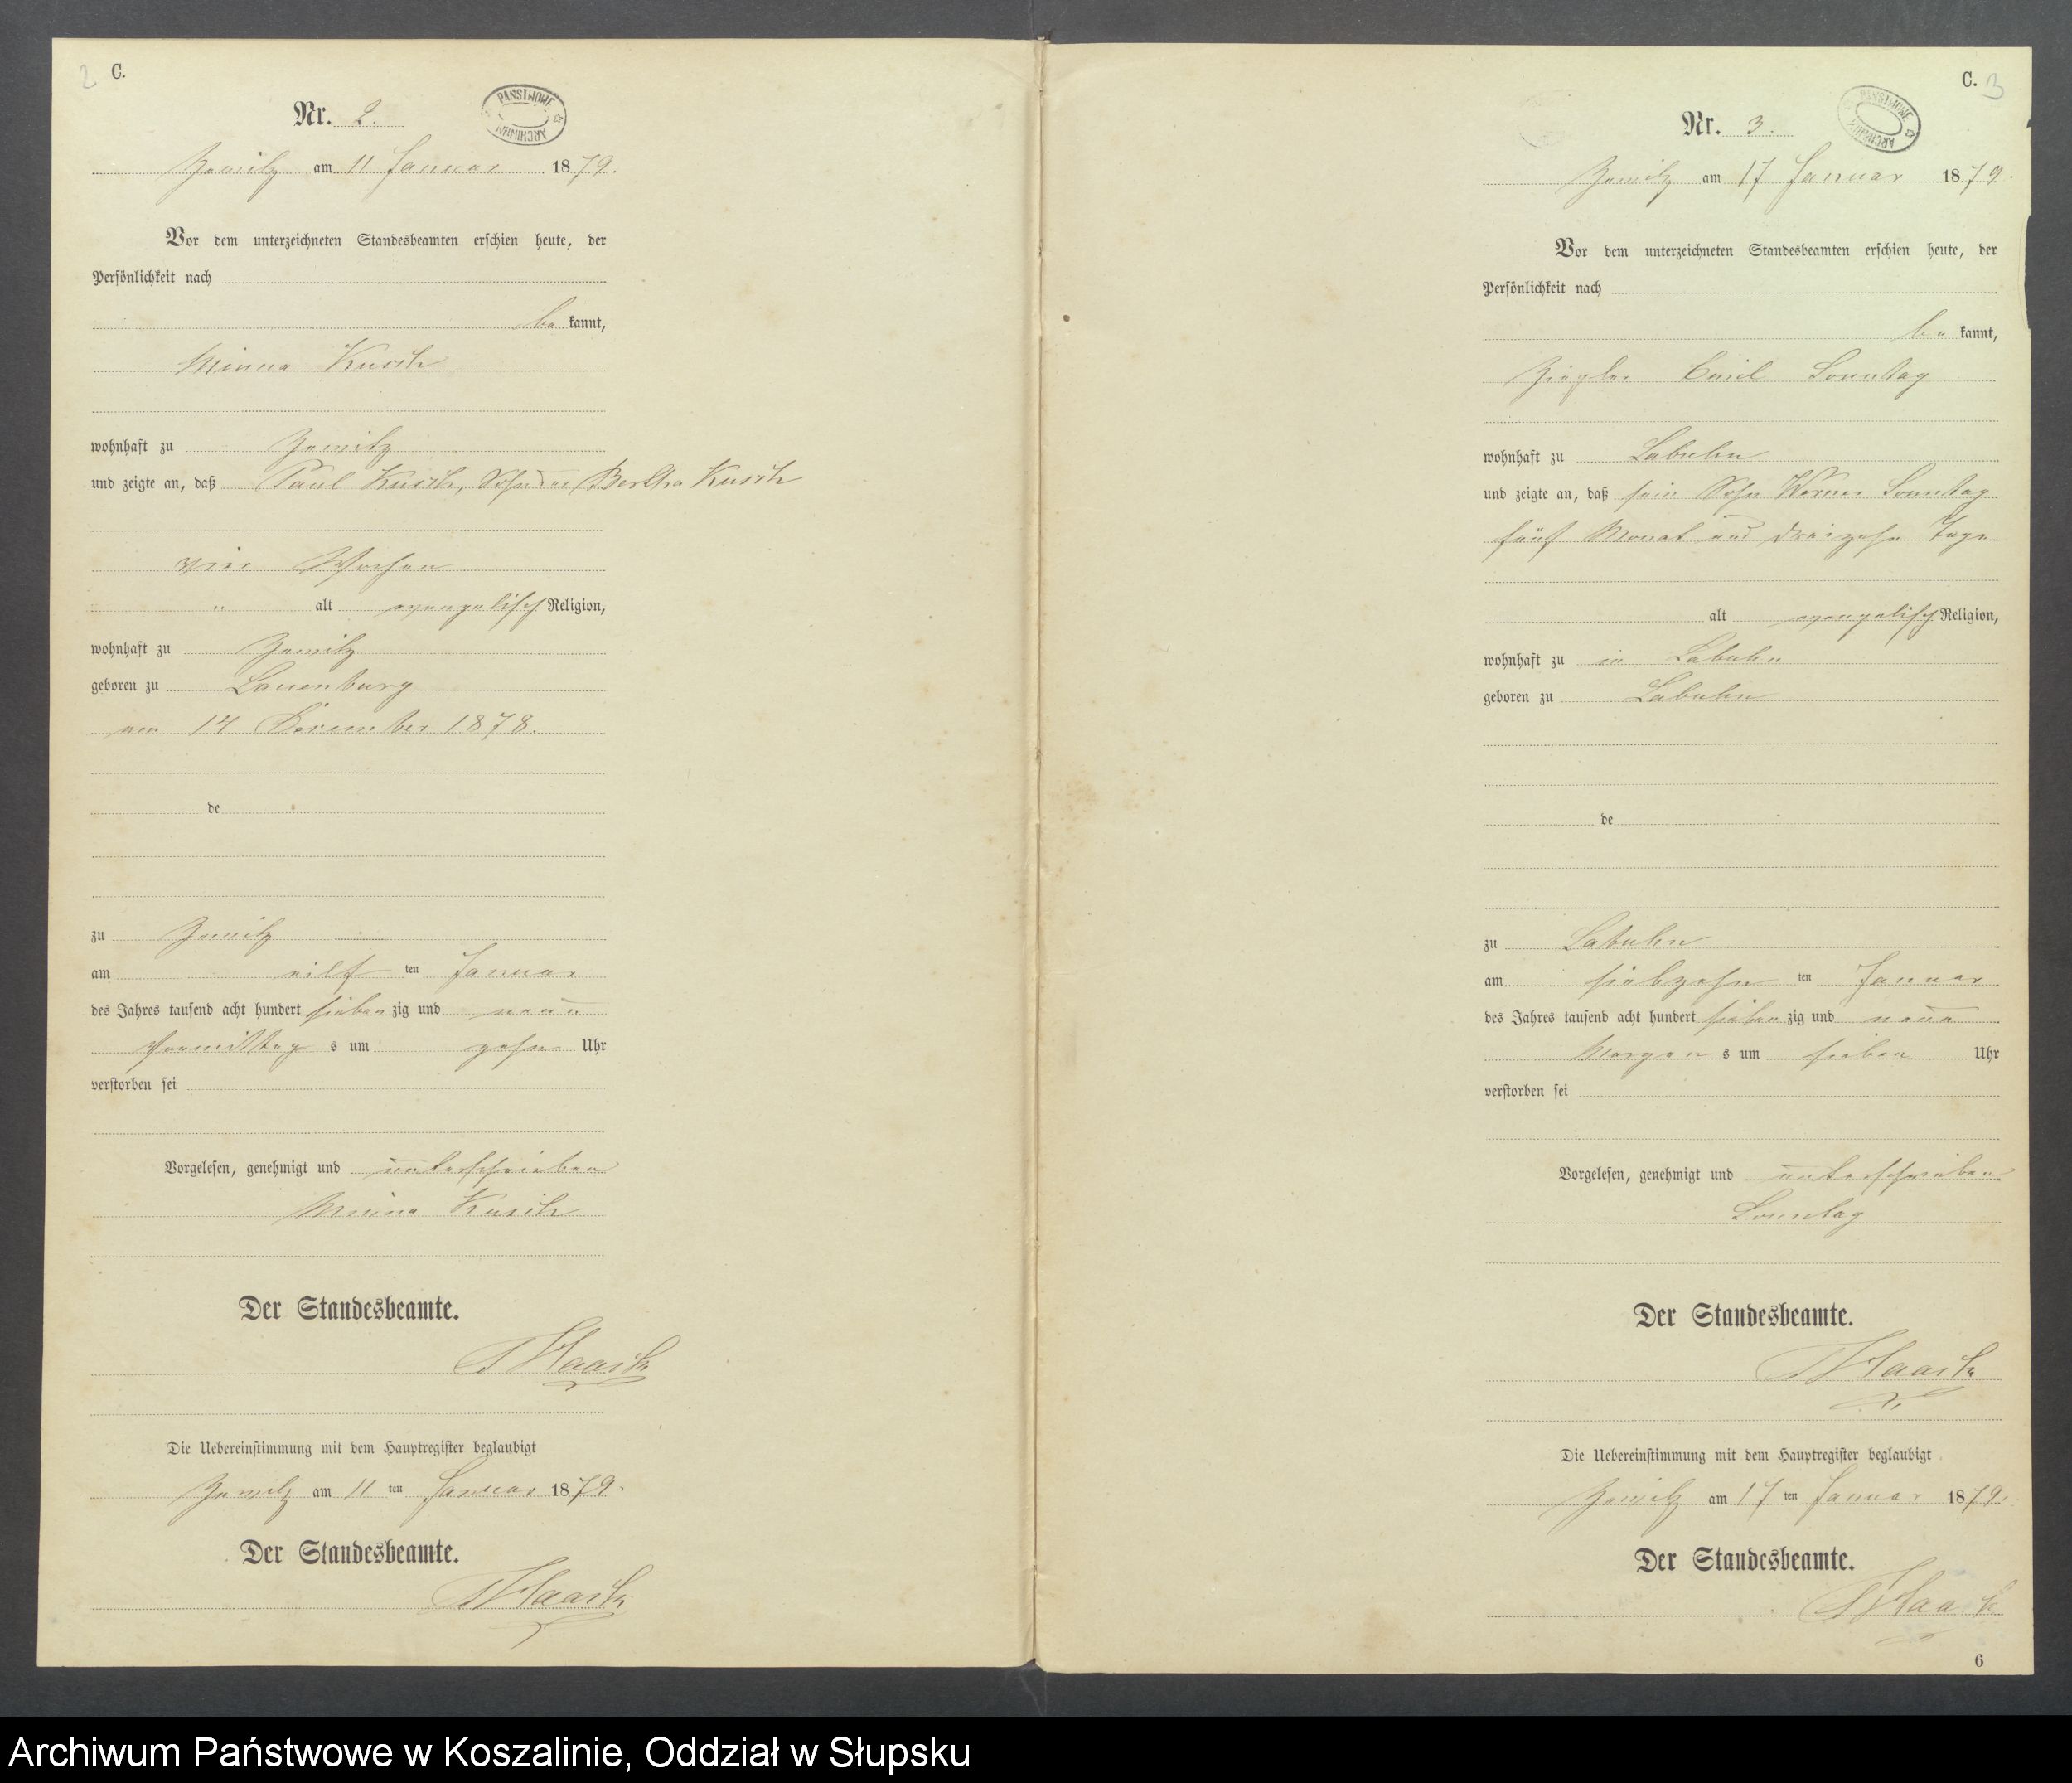 2 C.
Nr. 2.
PAŃSTWOWE ARCHIWUM
Zewitz am 11 Januar 1879.
Vor dem unterzeichneten Standesbeamten erschien heute, der
Persönlichkeit nach
be kannt,
Minna Kusch
wohnhaft zu Zewitz
und zeigte an, daß Paul Kusch, Sohn der Bertha Kusch
vier Wochen
" alt evangelisch Religion,
wohnhaft zu Zewitz
geboren zu Lauenburg
am 14 December 1878.
de
zu Zewitz
am eilf ten Januar
des Jahres tausend acht hundert sieben zig und neun
Vormittag s um zehn Uhr
verstorben sei
Vorgelesen, genehmigt und unterschrieben
Minna Kusch
Der Standesbeamte.
Die Uebereinstimmung mit dem Hauptregister beglaubigt
Zewitz am 11 ten Januar 1879.
Der Standesbeamte.
C. 3
Nr. 3.
PAŃSTWOWE ARCHIWUM
Zewitz am 17 Januar 1879.
Vor dem unterzeichneten Standesbeamten erschien heute, der
Persönlichkeit nach
be kannt,
Ziegler Emil Sonntag
wohnhaft zu Labuhn
und zeigte an, daß sein Sohn Werner Sonntag
fünf Monat und dreizehn Tage
alt evangelisch Religion,
wohnhaft zu in Labuhn
geboren zu Labuhn
de
zu Labuhn
am siebzehn ten Januar
des Jahres tausend acht hundert sieben zig und neun
Morgen s um sieben Uhr
verstorben sei
Vorgelesen, genehmigt und unterschrieben
Sonntag
Der Standesbeamte.
Die Uebereinstimmung mit dem Hauptregister beglaubigt
Zewitz am 17 ten Januar 1879.
Der Standesbeamte.
6
Archiwum Państwowe w Koszalinie, Oddział w Słupsku